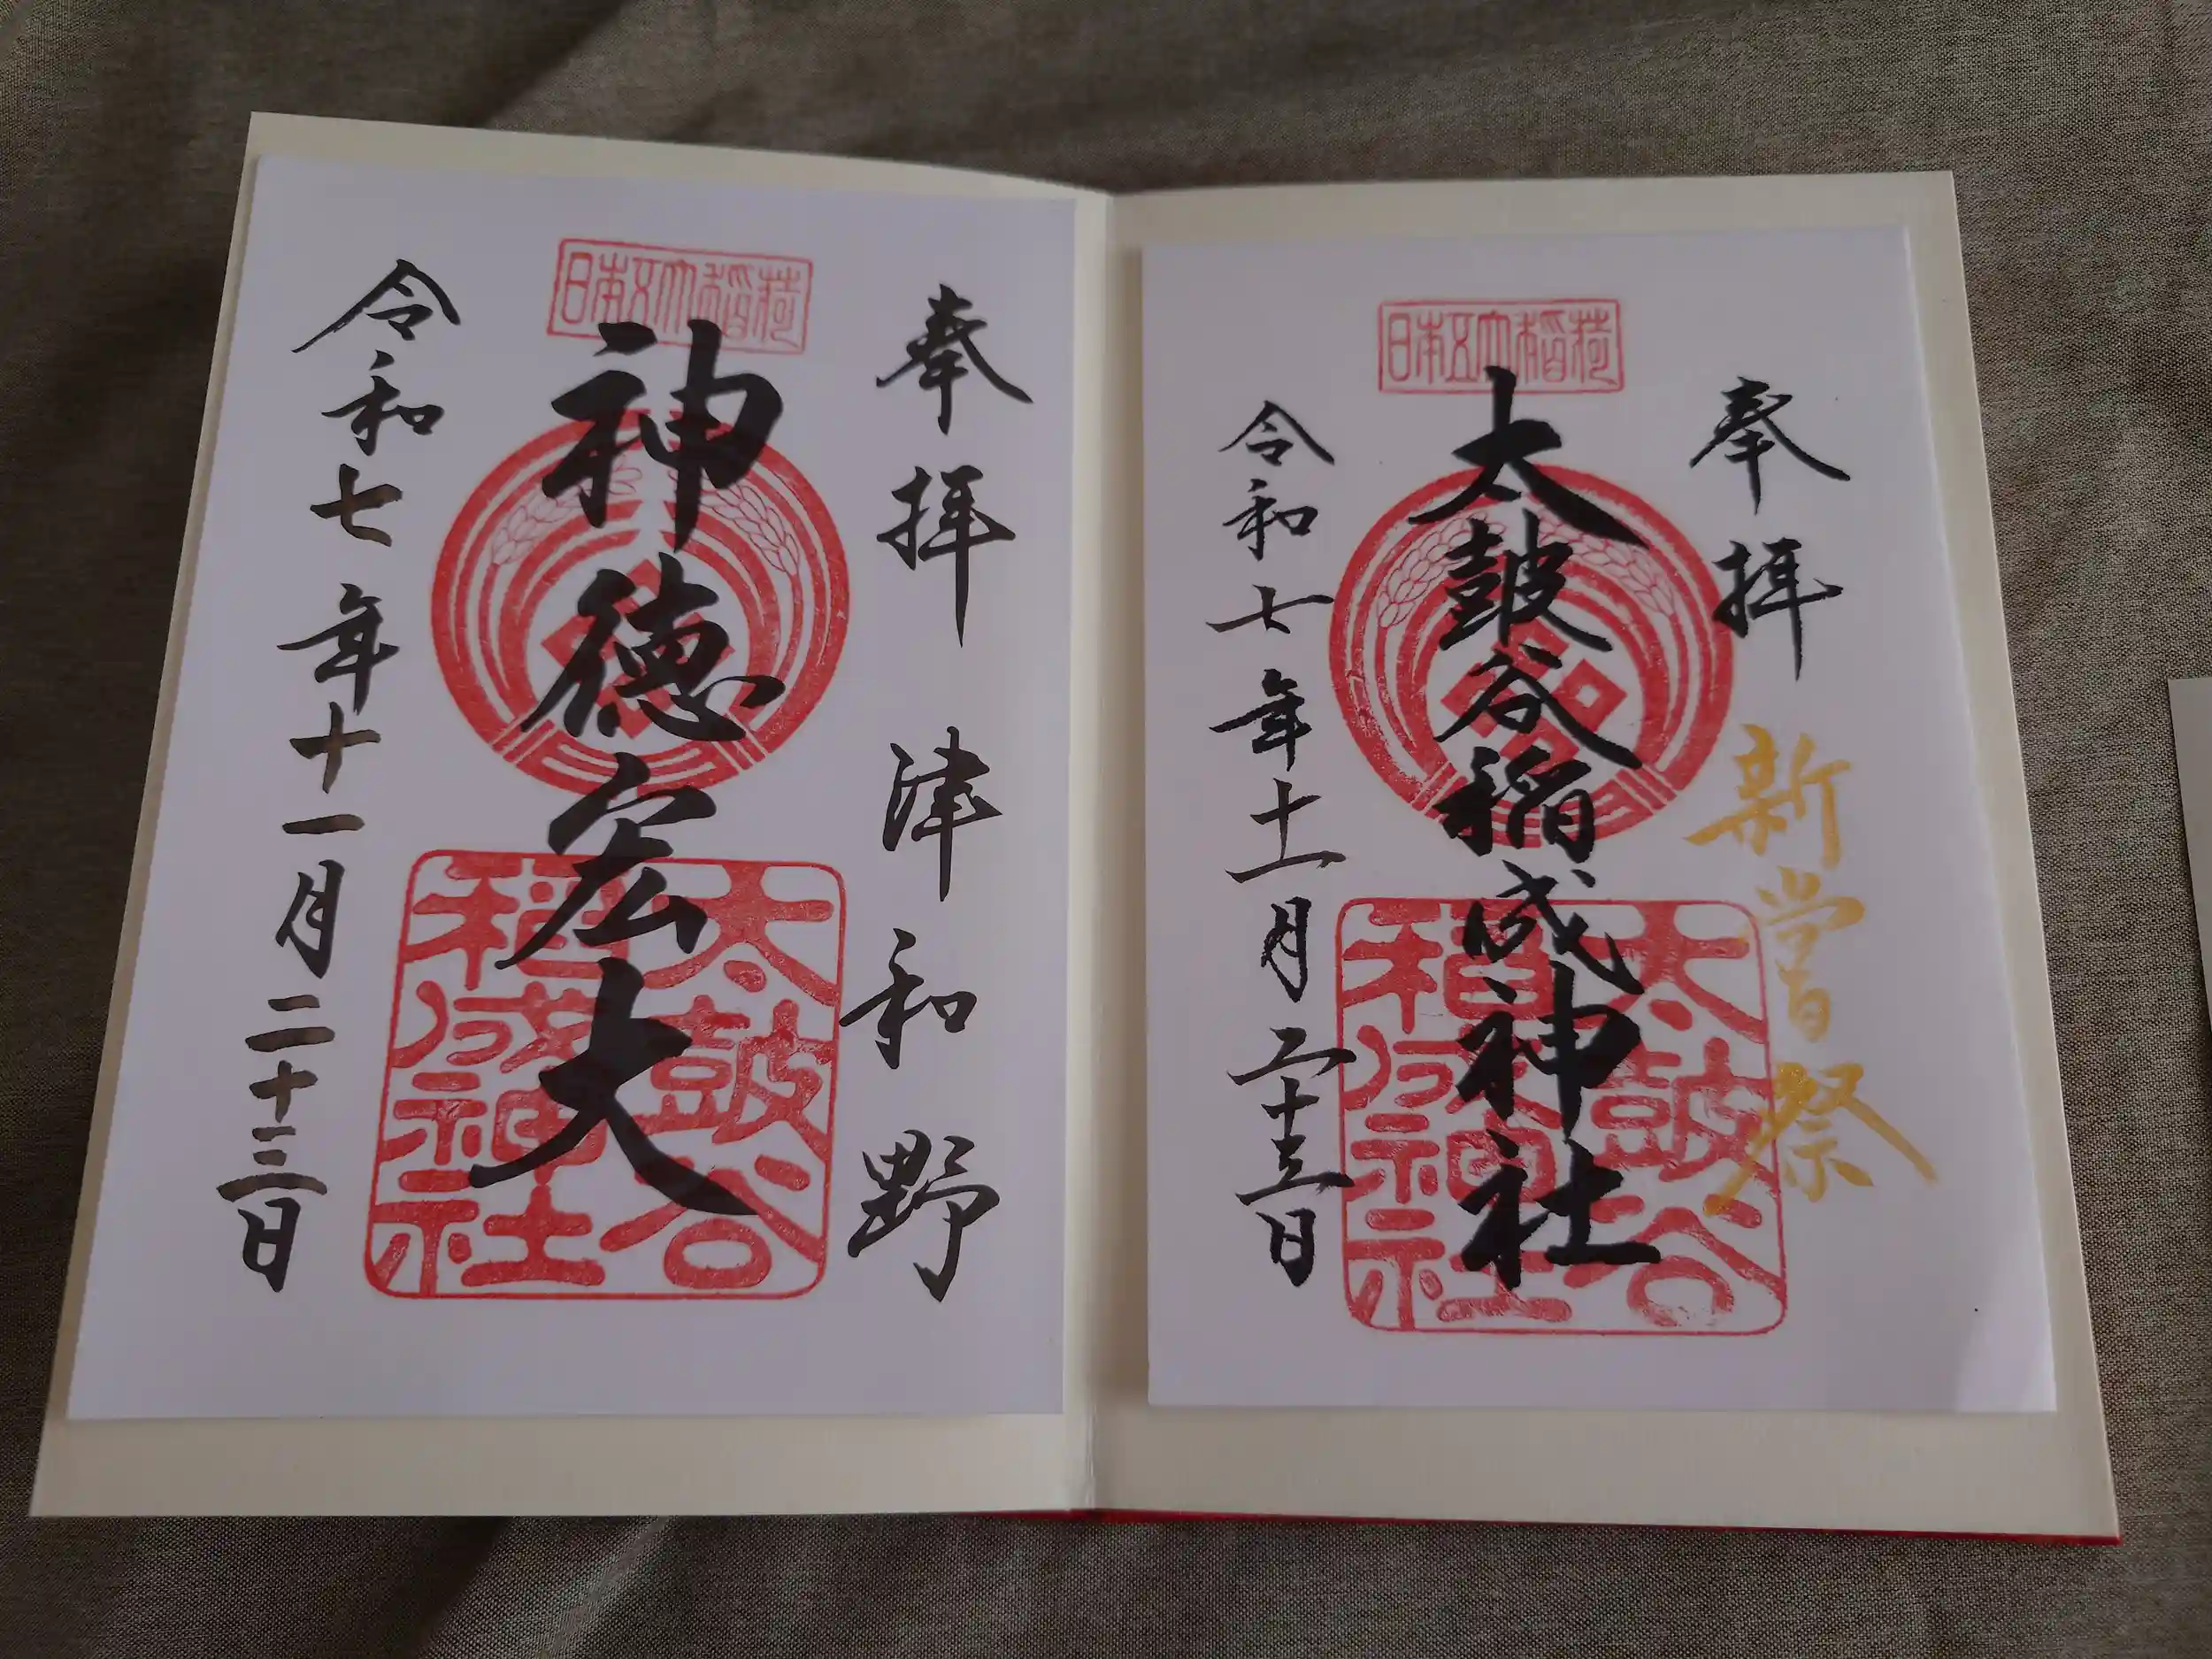 奉拝 新嘗祭
日本五大稲荷
太皷谷稲成神社
太皷谷稲成神社
令和七年十一月二十三日
奉拝 津和野
日本五大稲荷
神徳宏大
太皷谷稲成神社
令和七年十一月二十三日